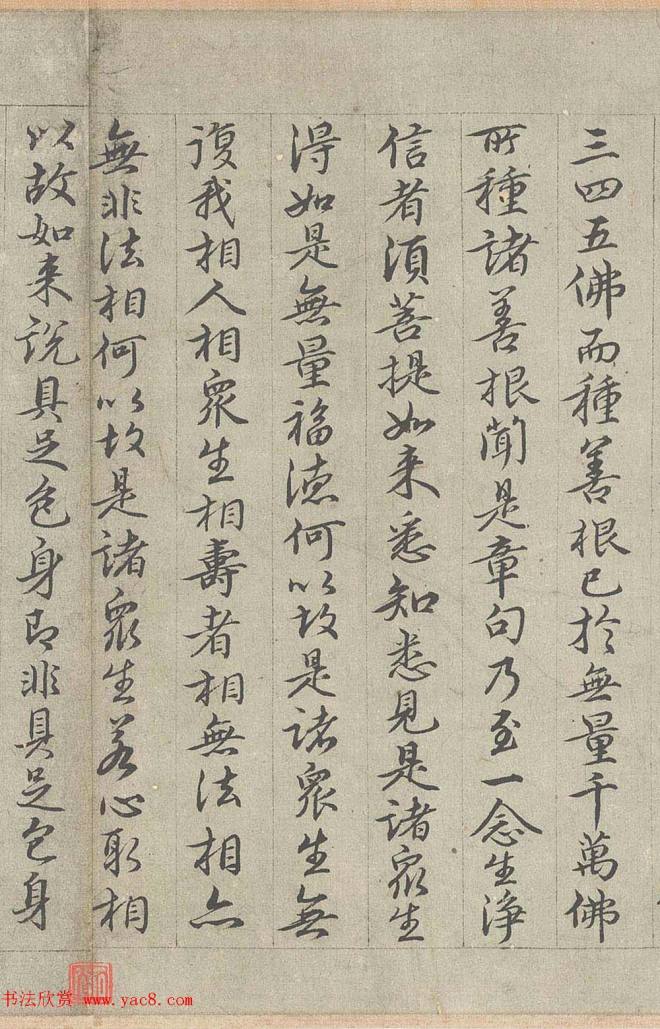 三四五佛而種善根已於無量千萬佛
所種諸善根聞是章句乃至一念生淨
信者須菩提如来悉知悉見是諸眾生
得如是無量福德何以故是諸眾生無
復我相人相眾生相壽者相無法相亦
無非法相何以故是諸眾生若心取相
以故如来說具足色身即非具足色身
书法欣赏 www.yac8.com